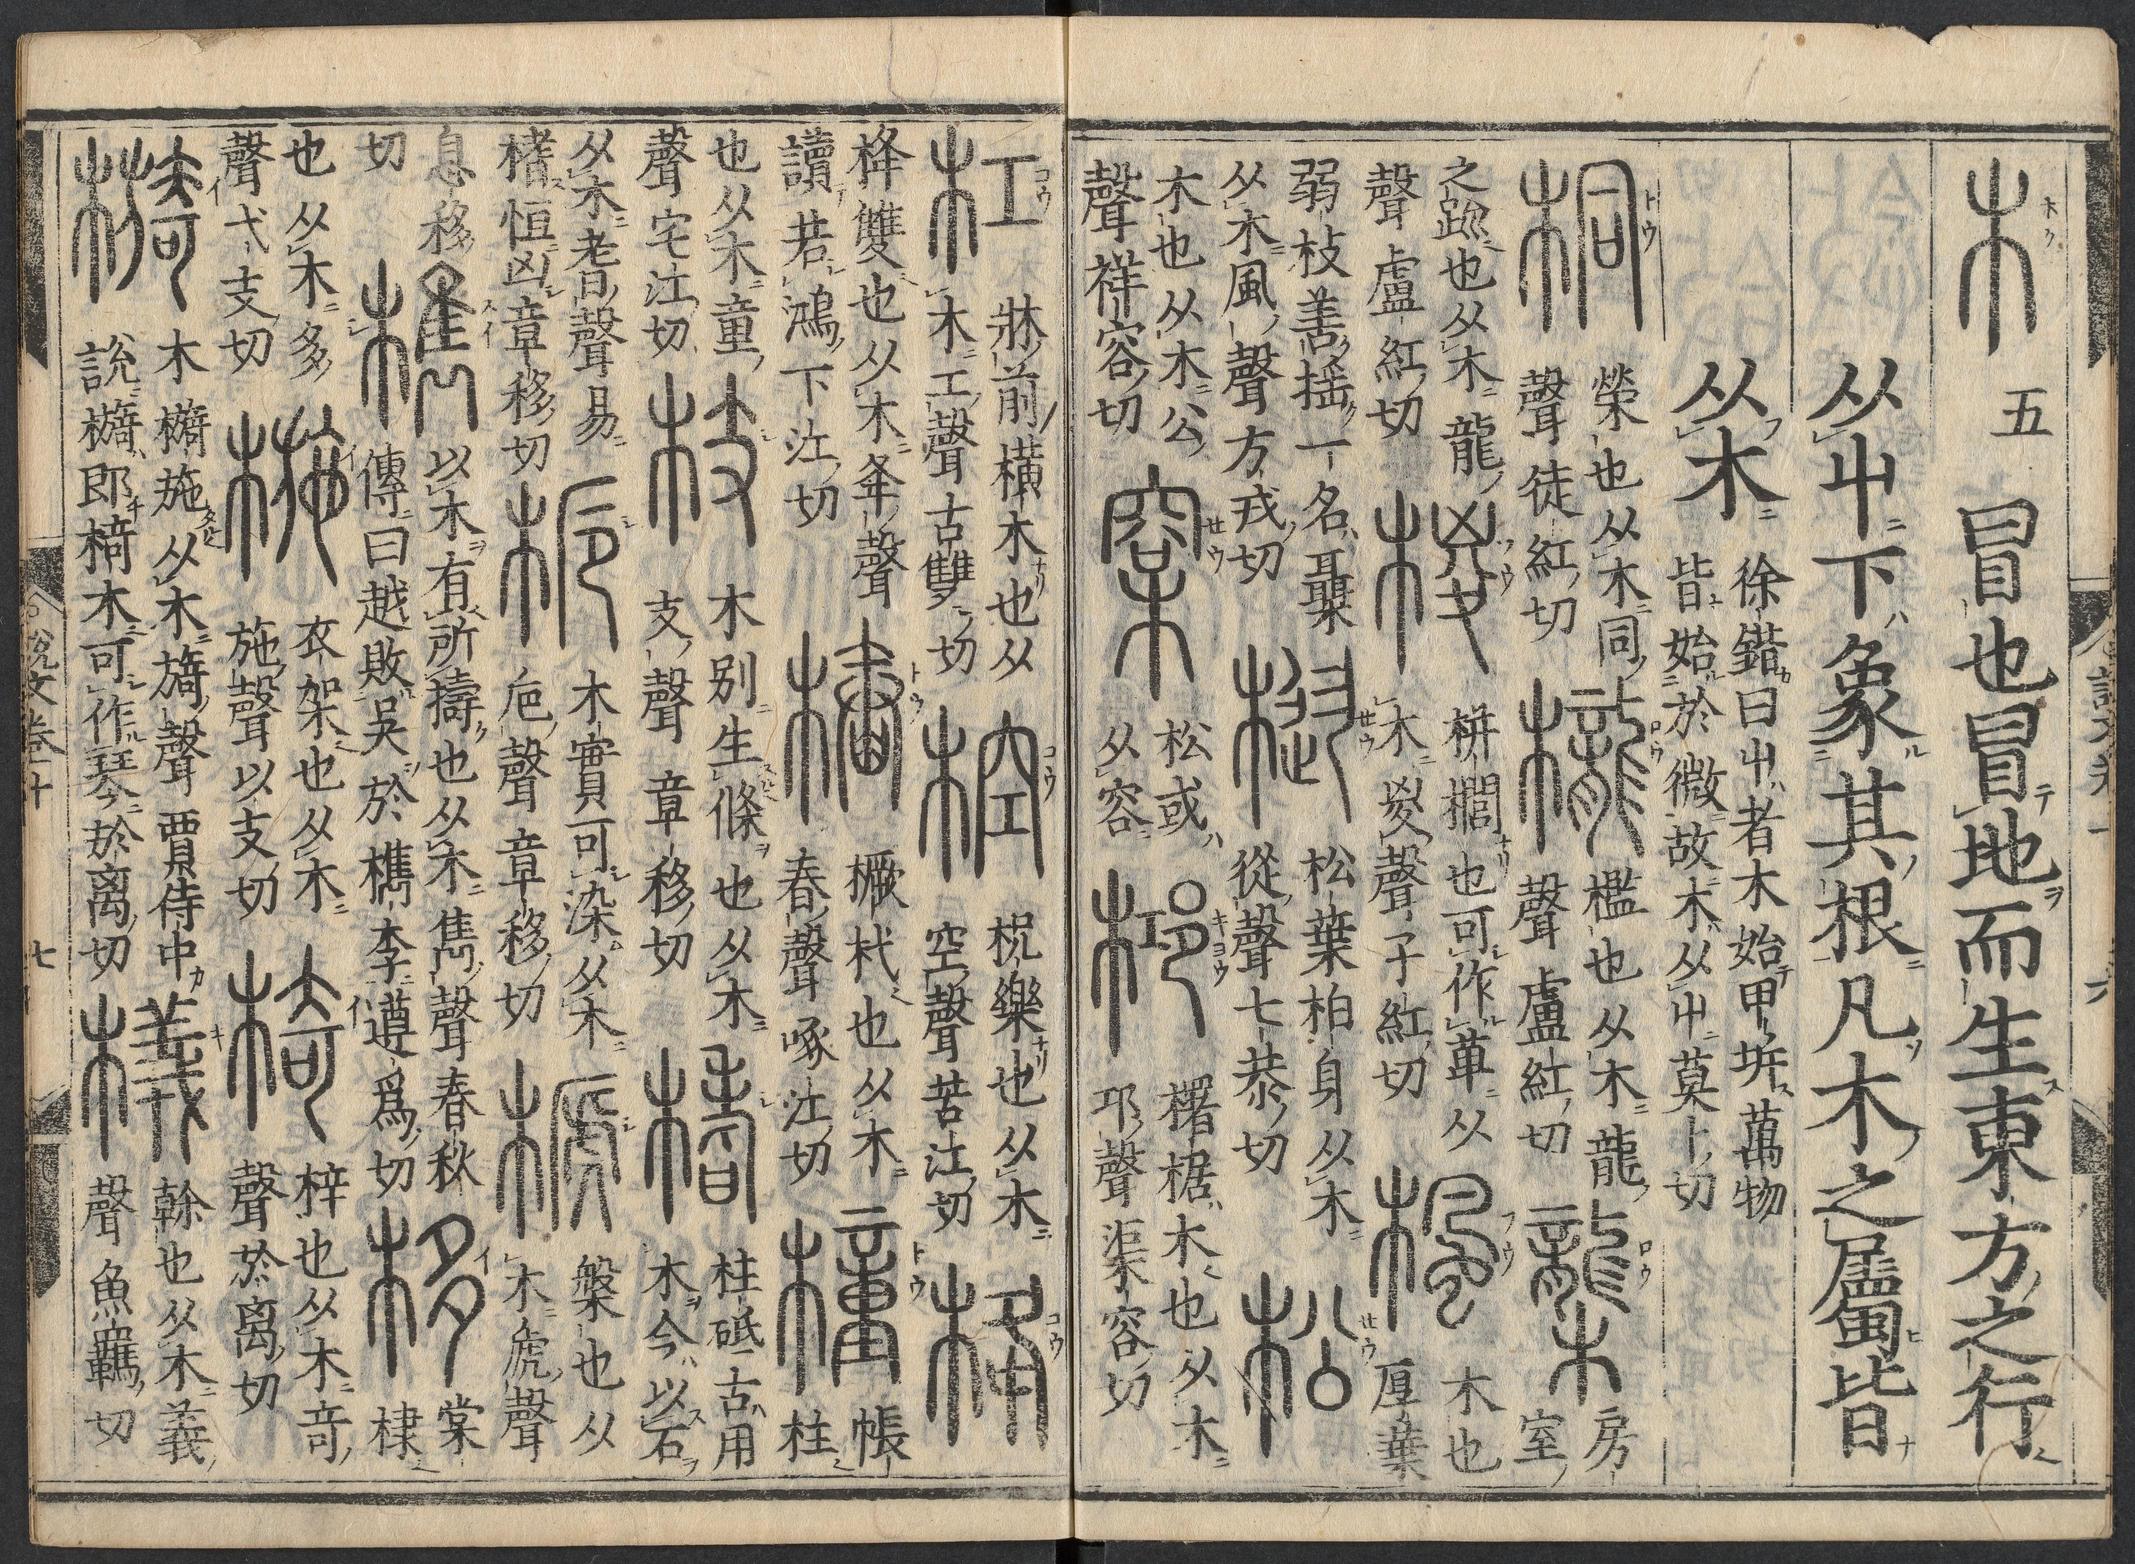 木 五 冒也冒地而生東方之行
从屮下象其根凡木之屬皆
从木 徐鍇曰屮者木始甲坼萬物皆始於微故木从屮莫卜切
桐 榮也从木同聲徒紅切 櫳 檻也从木龍聲盧紅切 櫳 房室
之䟽也从木龍聲盧紅切 椶 栟櫚也可作萆从木㚇聲子紅切 楓 木也厚葉
弱枝善揺一名聶从木風聲方戎切 樅 松葉柏身从木從聲七恭切 松
木也从木公聲祥容切 㮤 松或从容 桏 櫡椐木也从木邛聲渠容切
六
杠 牀前横木也从木工聲古雙切 椌 柷樂也从木空聲苦江切 栙
栙雙也从木夅聲讀若鴻下江切 樁 橛杙也从木舂聲啄江切 橦 帳柱
也从木童聲宅江切 枝 木别生條也从木支聲章移切 榰 柱砥古用木今以石
从木耆聲易榰恒凶章移切 梔 木實可染从木巵聲章移切 榹 槃也从木虒聲
息移切 檇 以木有所擣也从木雋聲春秋傳曰越敗吳於檇李遵爲切 栘 棠棣
也从木多聲弋支切 椸 衣架也从木施聲以支切 椅 梓也从木奇聲於离切
檹 木檹施从木旖聲賈侍中説檹即椅木可作琴於离切 檥 榦也从木義聲魚羈切
説文卷十 七